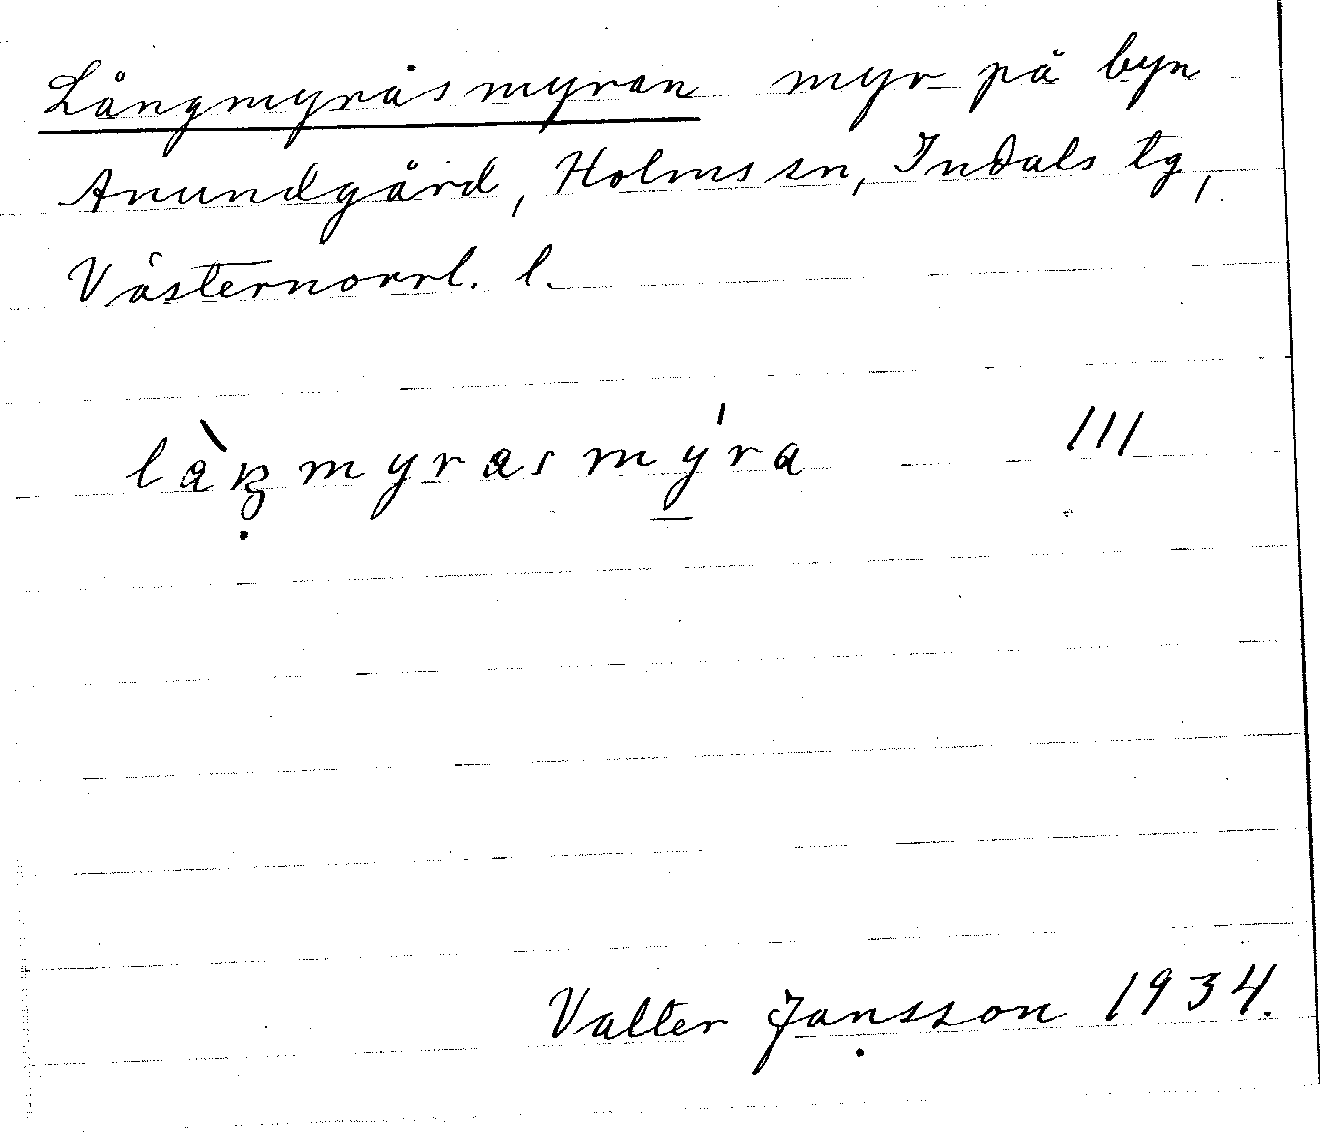 Långmyråsmyran myr på byn
Anundgård, Holms sn, Indals tg,
Västernorrl. l.
làŋmyrasmýra III
Valter Jansson 1934.